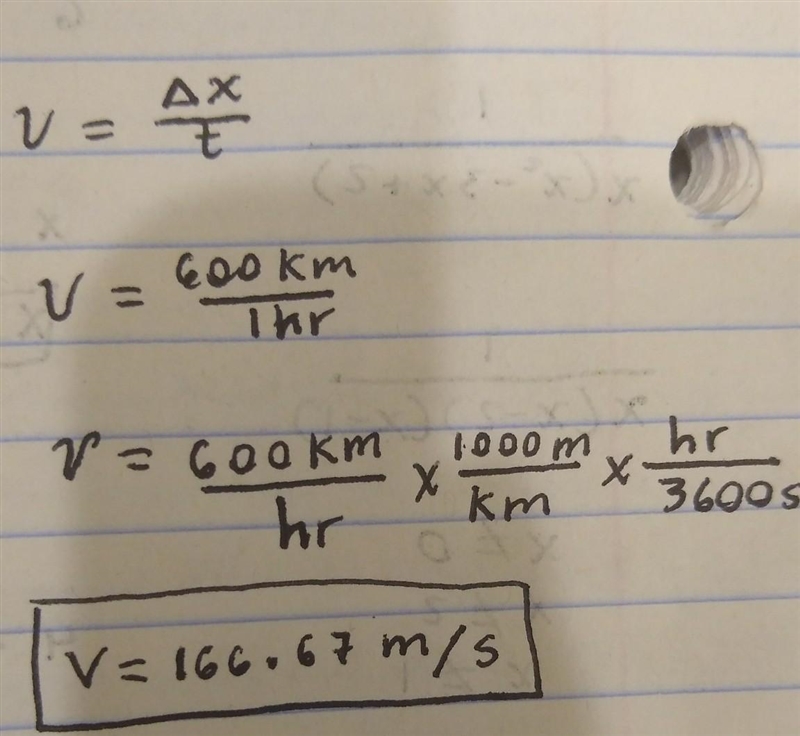 V = Δx/t
V = 600 km/1hr
V = 600 km/hr x 1000 m/km x hr/3600s
V = 166.67 m/s